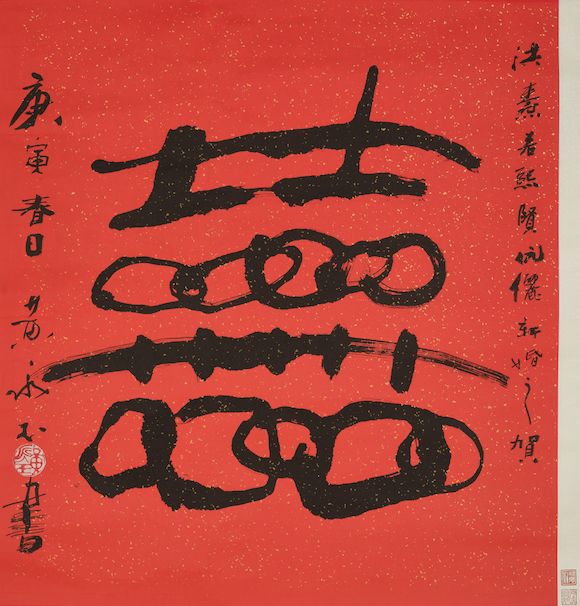 洪熙賢伉儷新婚之賀
囍
庚寅春日 黃永玉書